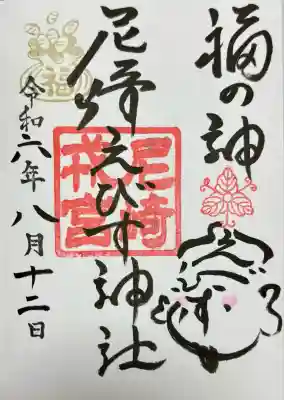 福の神
えびす
尼崎えびす神社
尼崎
戎宮
福
令和六年八月十二日